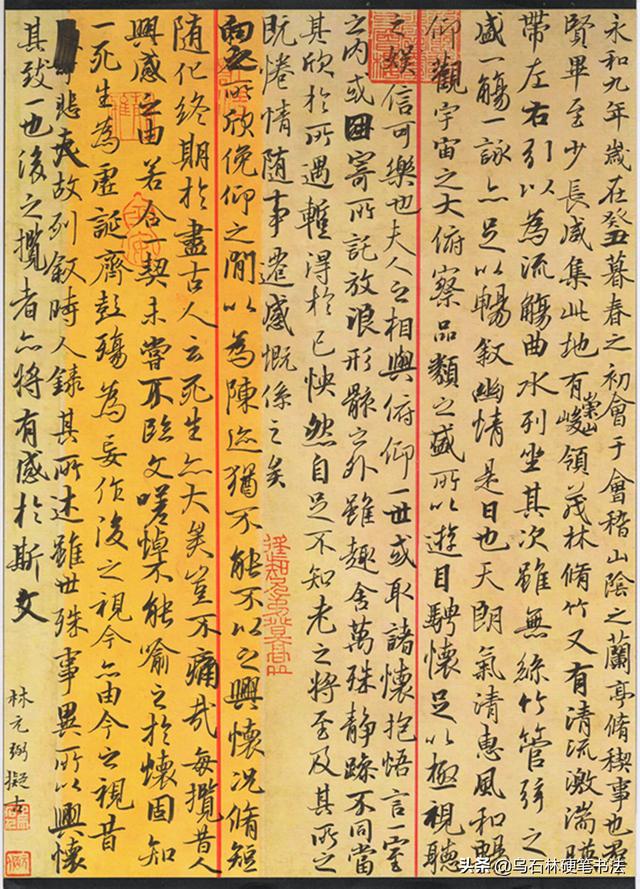 永和九年歲在癸丑暮春之初會于會稽山陰之蘭亭脩稧事也羣
賢畢至少長咸集此地有崇山峻領茂林脩竹又有清流激湍暎
帶左右引以為流觴曲水列坐其次雖無絲竹管弦之
盛一觴一詠亦足以暢敘幽情是日也天朗氣清惠風和暢
仰觀宇宙之大俯察品類之盛所以遊目騁懷足以極視聽
之娛信可樂也夫人之相與俯仰一世或取諸懷抱悟言一室
之内或因寄所託放浪形骸之外雖趣舍萬殊静躁不同當
其欣於所遇暫得於己怏然自足不知老之將至及其所之
既惓情隨事遷感慨係之矣
向之所欣俛仰之閒以為陳迹猶不能不以之興懷況脩短
隨化終期於盡古人云死生亦大矣豈不痛哉每攬昔人
興感之由若合一契未嘗不臨文嗟悼不能喻之於懷固知
一死生為虛誕齊彭殤為妄作後之視今亦由今之視昔
悲夫故列敘時人錄其所述雖世殊事異所以興懷
其致一也後之攬者亦將有感於斯文
林元弼擬古
头条 @乌石林硬笔书法